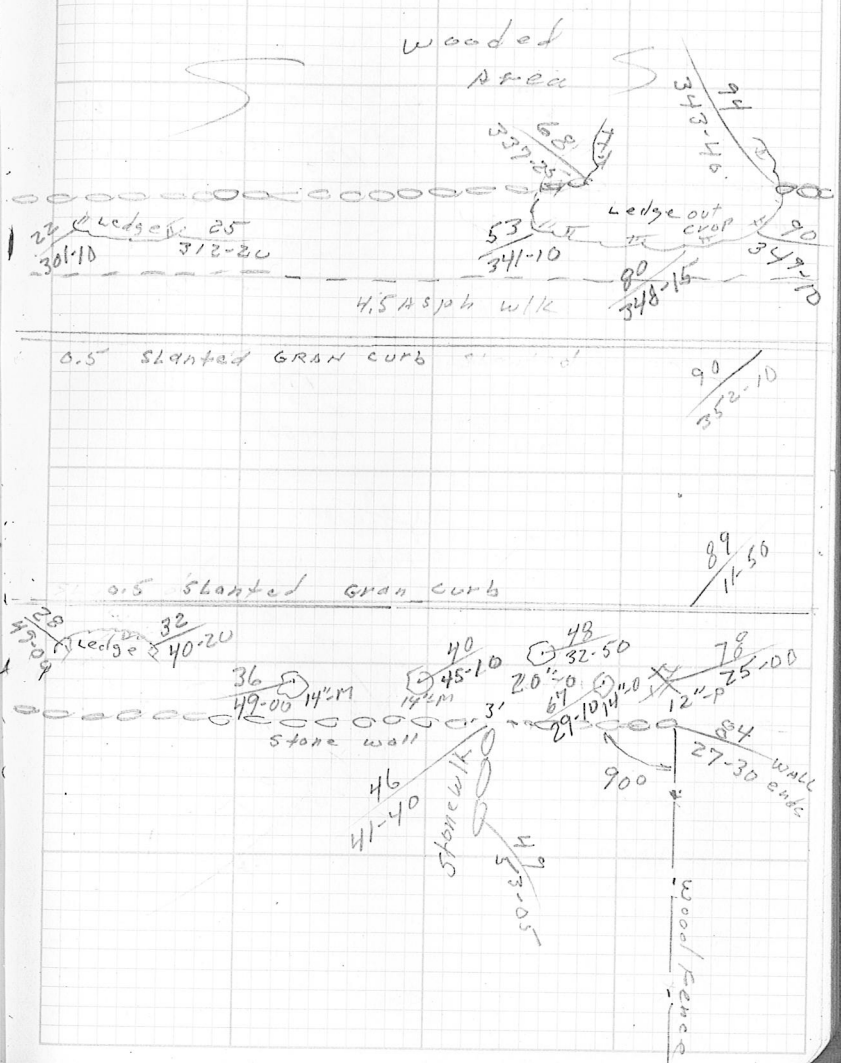 Wooded
Area
94
343-40
68
337-25
Ledge
22
301-10
25
312-20
53
341-10
Ledge out
crop
80
348-15
90
349-10
4.5 Asph W/K
0.5 Slanted GRAN Curb
90
352-10
89
11-50
0.5 Slanted Gran Curb
28
49-09
Ledge
32
40-20
36
49-00
14"-M
40
45-10
14"-M
48
32-50
20"-0
67
29-10
14"-0
78
25-00
12"-P
3'
Stone wall
84
27-30
WALL
ends
900
46
41-40
Stone W/K
49
53-05
Wood Fence